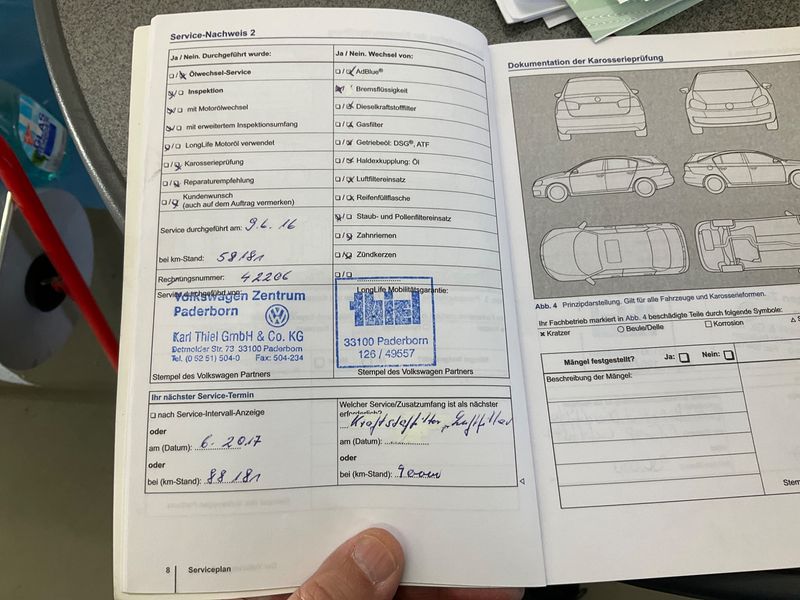 Service-Nachweis 2
Ja / Nein. Durchgeführt wurde:
Ölwechsel-Service
Inspektion
mit Motorölwechsel
mit erweitertem Inspektionsumfang
LongLife Motoröl verwendet
Karosserieprüfung
Reparaturempfehlung
Kundenwunsch
(auch auf dem Auftrag vermerken)
Service durchgeführt am: 9.6.16
bei km-Stand: 58181
Rechnungsnummer: 42206
Service durchgeführt von:
Volkswagen Zentrum
Paderborn
Karl Thiel GmbH & Co. KG
Detmolder Str. 73 33100 Paderborn
Tel. (0 52 51) 504-0 Fax: 504-234
Stempel des Volkswagen Partners
Ja / Nein. Wechsel von:
AdBlue®
Bremsflüssigkeit
Dieselkraftstofffilter
Gasfilter
Getriebeöl: DSG®, ATF
Haldexkupplung: Öl
Luftfiltereinsatz
Reifenfüllflasche
Staub- und Pollenfiltereinsatz
Zahnriemen
Zündkerzen
LongLife Mobilitätsgarantie:
thiel
33100 Paderborn
126 / 49557
Stempel des Volkswagen Partners
Ihr nächster Service-Termin
nach Service-Intervall-Anzeige
oder
am (Datum): 6.2017
oder
bei (km-Stand): 88181
Welcher Service/Zusatzumfang ist als nächster
erforderlich?
Luftfilter
am (Datum):
oder
bei (km-Stand): 90000
8 Serviceplan
Dokumentation der Karosserieprüfung
Abb. 4 Prinzipdarstellung. Gilt für alle Fahrzeuge und Karosserieformen.
Ihr Fachbetrieb markiert in Abb. 4 beschädigte Teile durch folgende Symbole:
× Kratzer ○ Beule/Delle □ Korrosion
Mängel festgestellt? Ja: Nein:
Beschreibung der Mängel: